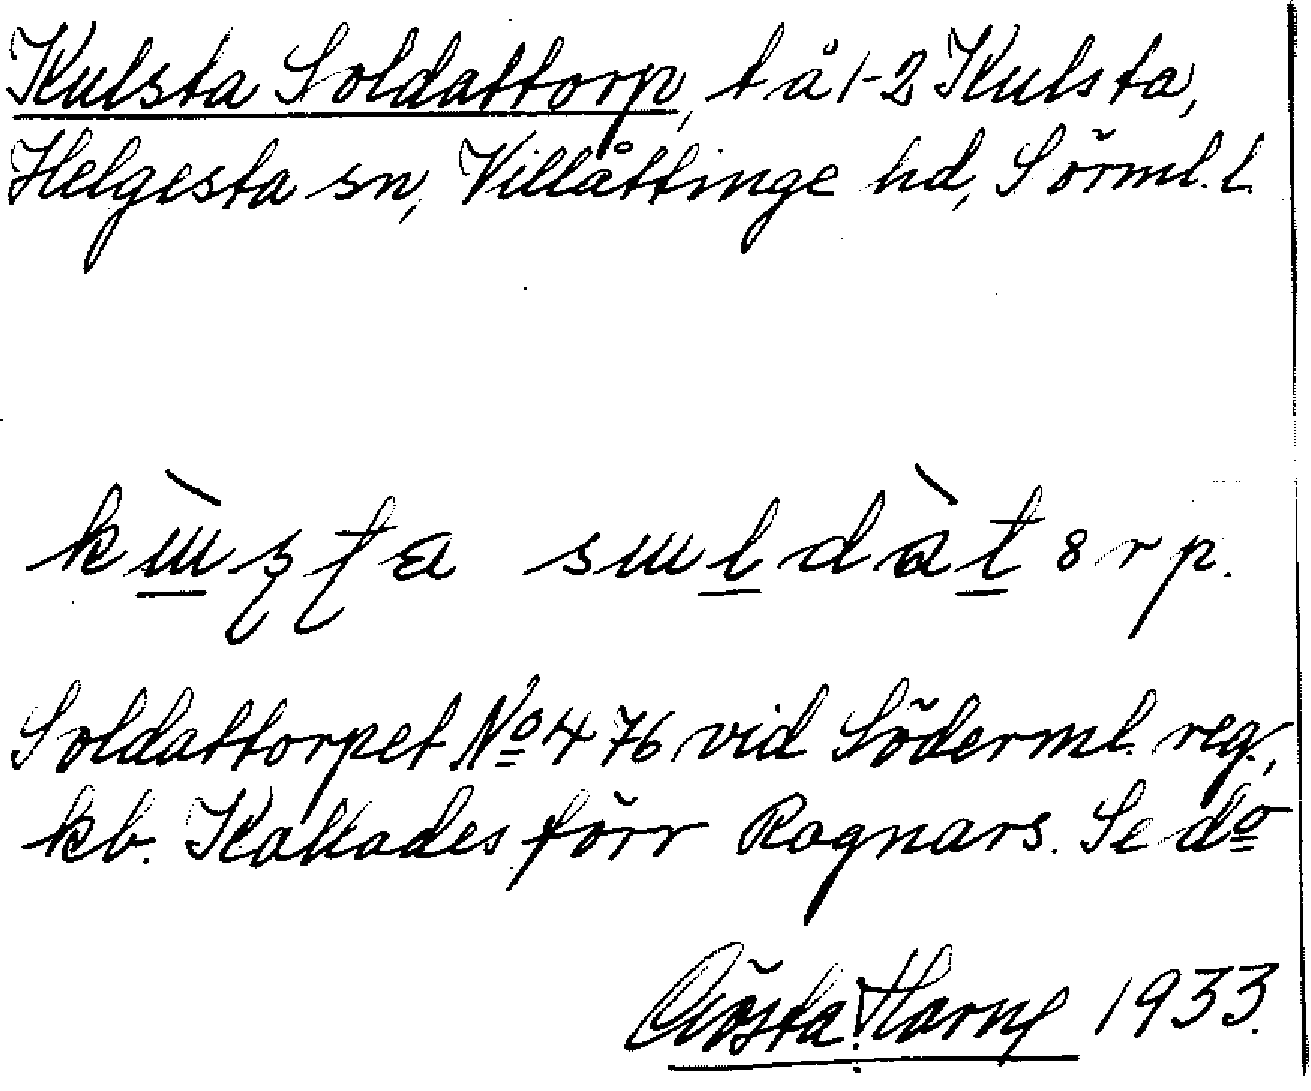 Kulsta Soldattorp, t å 1-2 Kulsta,
Helgesta sn, Villåttinge hd, Sörml. l.
Soldattorpet No 476 vid Söderml. reg.,
kb. Kallades förr Ragnars. Se do
Gösta Harng 1933.